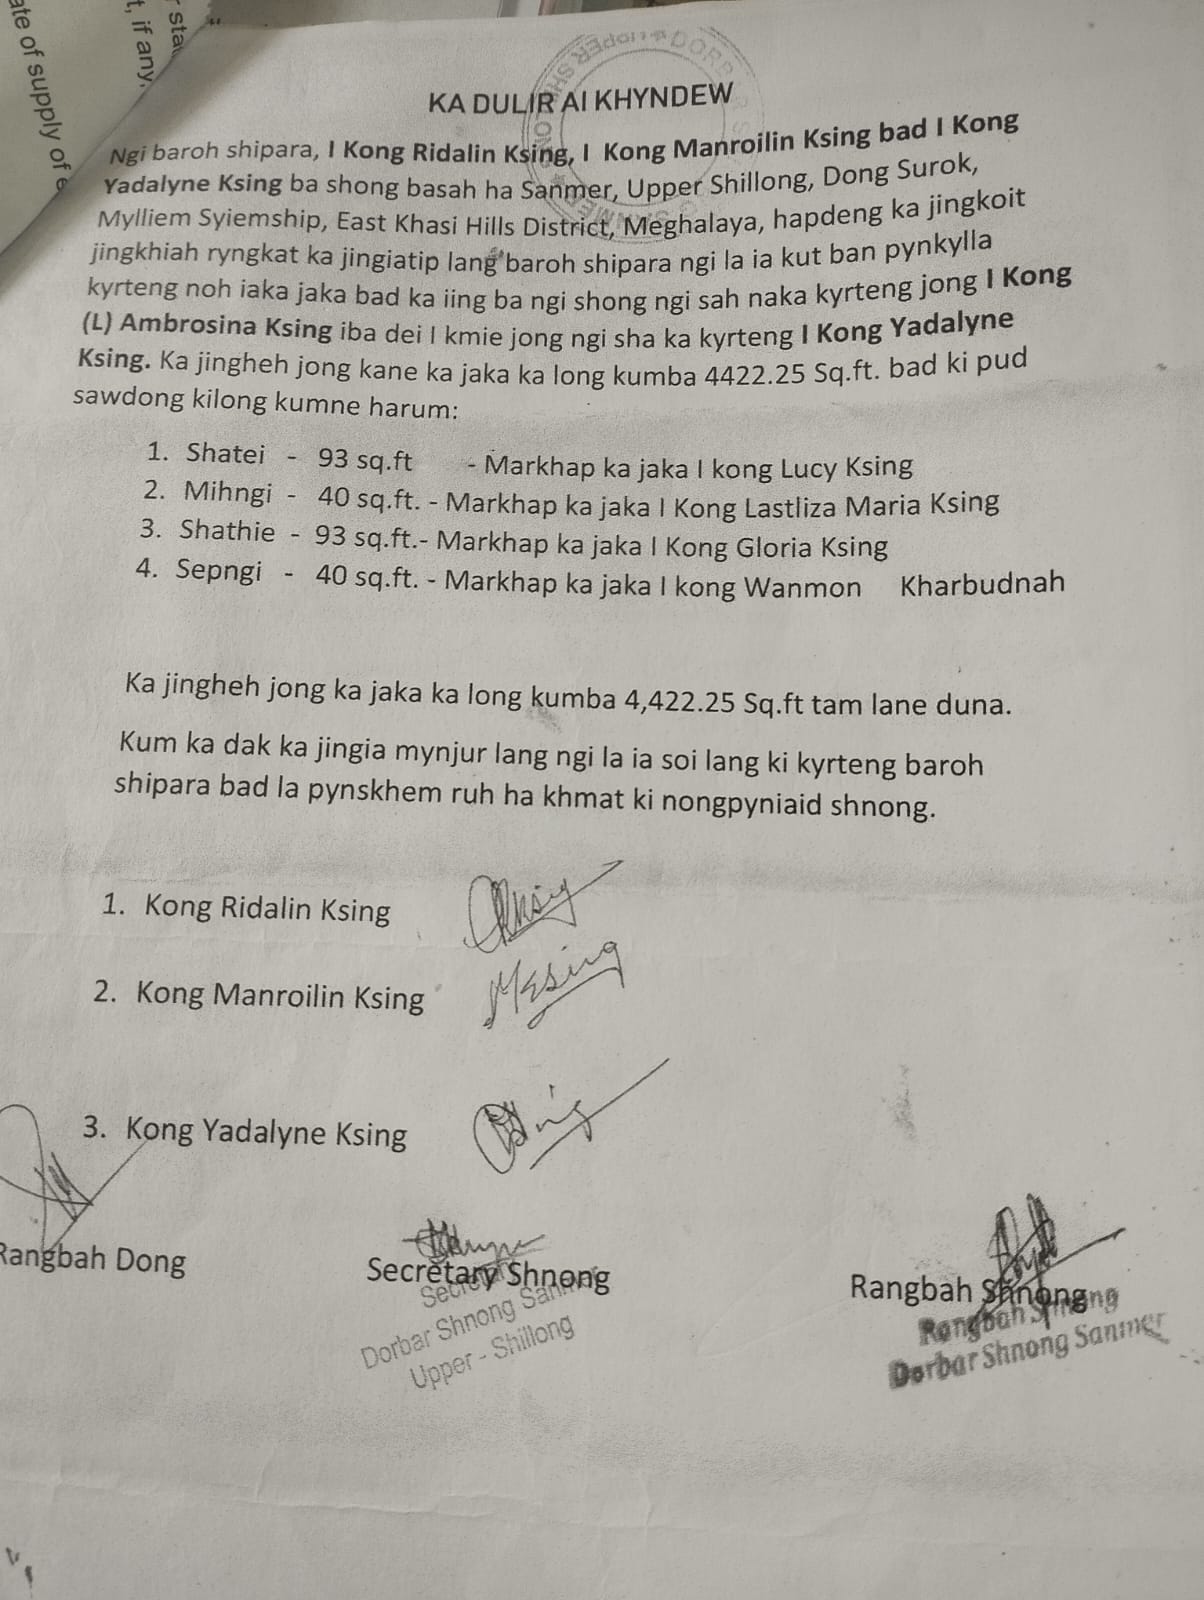 ate of supply of e
t, if any,
r sta
KA DULIR AI KHYNDEW
Ngi baroh shipara, I Kong Ridalin Ksing, I Kong Manroilin Ksing bad I Kong
Yadalyne Ksing ba shong basah ha Sanmer, Upper Shillong, Dong Surok,
Mylliem Syiemship, East Khasi Hills District, Meghalaya, hapdeng ka jingkoit
jingkhiah ryngkat ka jingiatip lang baroh shipara ngi la ia kut ban pynkylla
kyrteng noh iaka jaka bad ka iing ba ngi shong ngi sah naka kyrteng jong I Kong
(L) Ambrosina Ksing iba dei I kmie jong ngi sha ka kyrteng I Kong Yadalyne
Ksing. Ka jingheh jong kane ka jaka ka long kumba 4422.25 Sq.ft. bad ki pud
sawdong kilong kumne harum:
1. Shatei - 93 sq.ft - Markhap ka jaka I kong Lucy Ksing
2. Mihngi - 40 sq.ft. - Markhap ka jaka I Kong Lastliza Maria Ksing
3. Shathie - 93 sq.ft.- Markhap ka jaka I Kong Gloria Ksing
4. Sepngi - 40 sq.ft. - Markhap ka jaka I kong Wanmon Kharbudnah
Ka jingheh jong ka jaka ka long kumba 4,422.25 Sq.ft tam lane duna.
Kum ka dak ka jingia mynjur lang ngi la ia soi lang ki kyrteng baroh
shipara bad la pynskhem ruh ha khmat ki nongpyniaid shnong.
1. Kong Ridalin Ksing
2. Kong Manroilin Ksing
3. Kong Yadalyne Ksing
Rangbah Dong
Secretary Shnong
Dorbar Shnong Sanmer
Upper - Shillong
Rangbah Shnong
Rangbah Shnong
Dorbar Shnong Sanmer